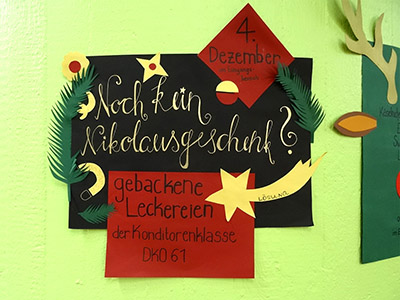 4.
Dezember
Noch kein
Nikolausgeschenk?
LÖSUNG
gebackene
Leckereien
der Konditorenklasse
DKO 61